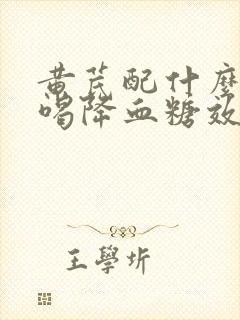 黄芪配什麽
喝降血糖效
王學圻